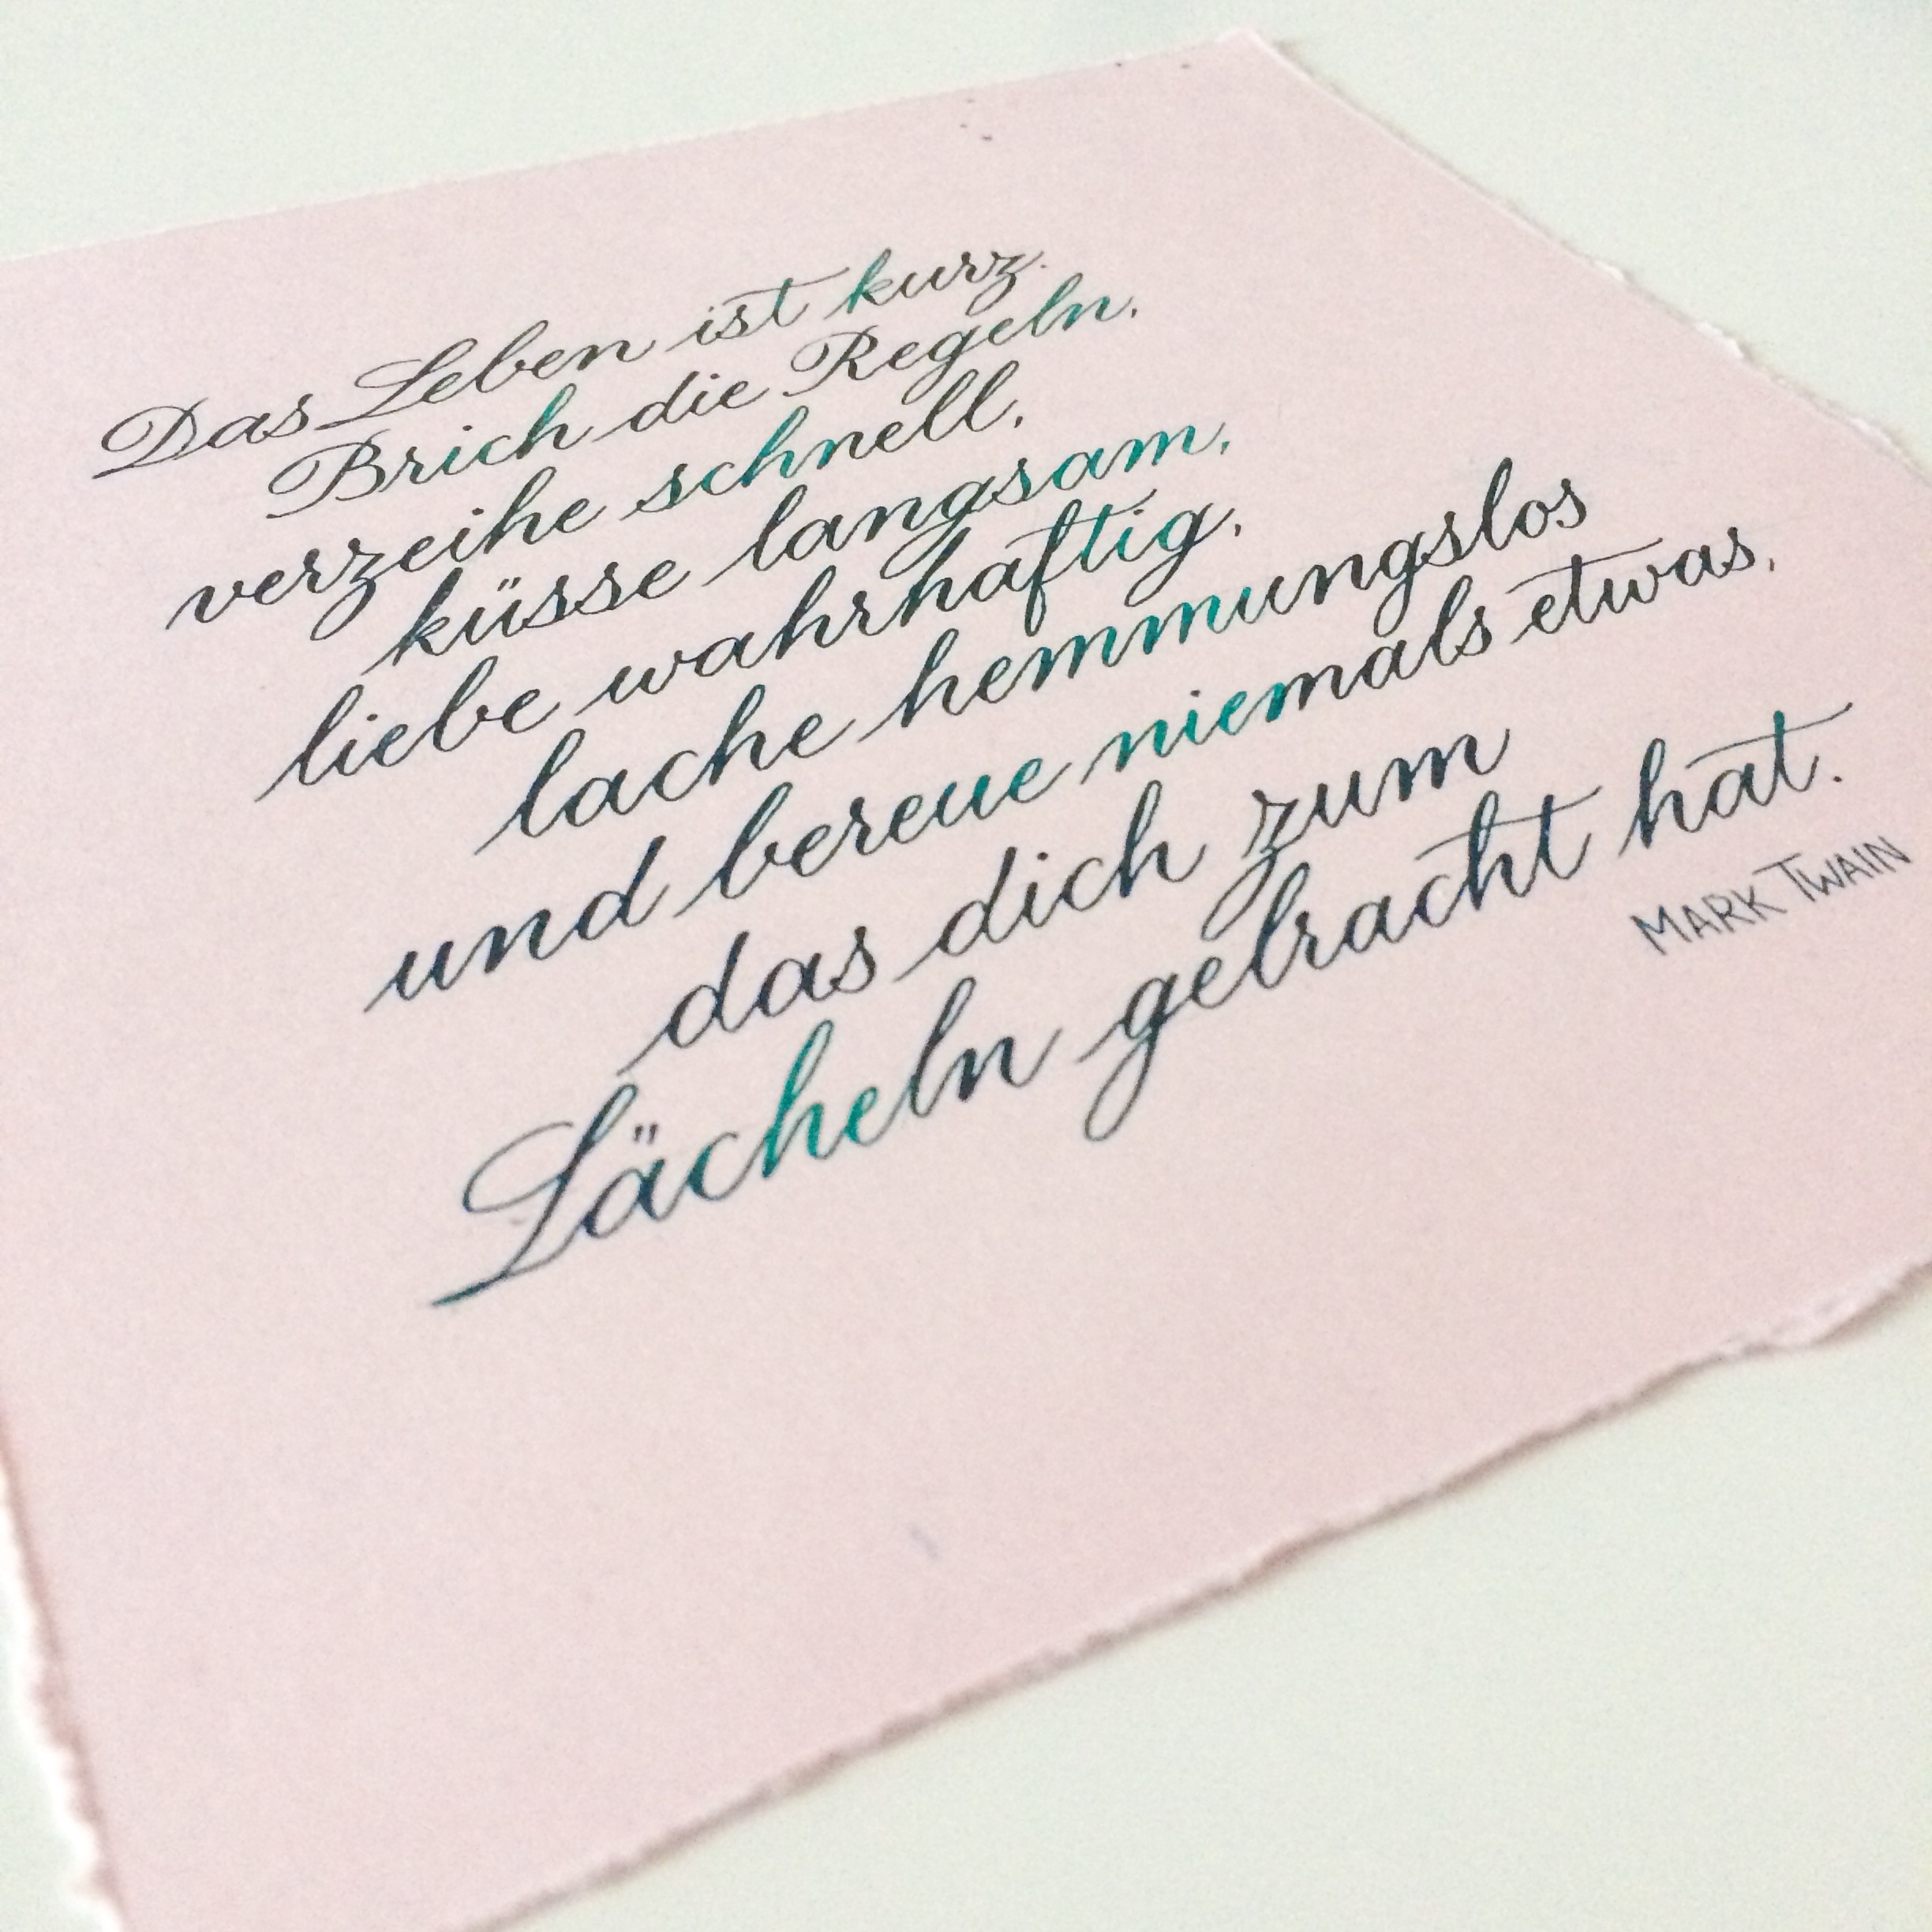 Das Leben ist kurz.
Brich die Regeln,
verzeihe schnell,
küsse langsam,
liebe wahrhaftig,
lache hemmungslos
und bereue niemals etwas,
das dich zum
Lächeln gebracht hat.
MARK TWAIN